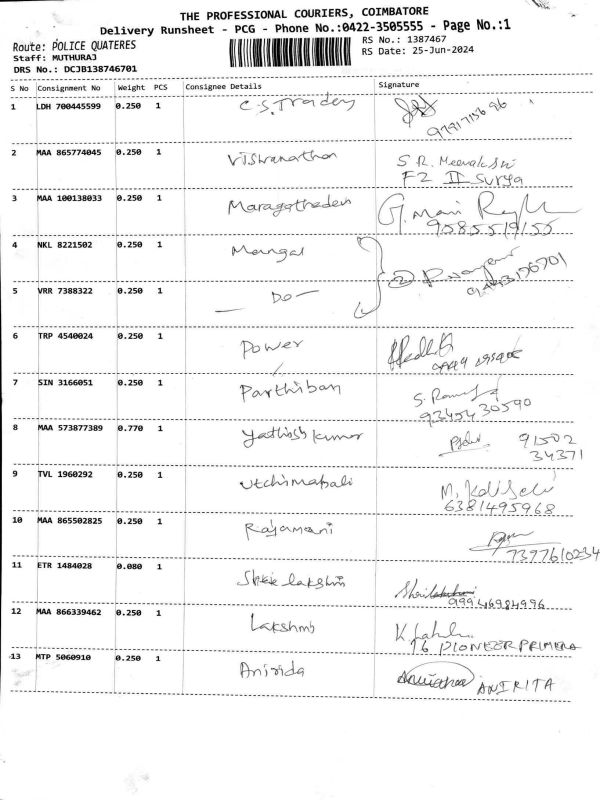 THE PROFESSIONAL COURIERS, COIMBATORE
Delivery Runsheet - PCG - Phone No.:0422-3505555 - Page No.:1
Route: POLICE QUATERES
RS No.: 1387467
Staff: MUTHURAJ
RS Date: 25-Jun-2024
DRS No.: DCJB138746701
S No Consignment No Weight PCS Consignee Details Signature
1 LDH 700445599 0.250 1 C.S. Traders
2 MAA 865774045 0.250 1 Viswanathan S.R. Meenakshi
F2 II Surya
3 MAA 100138033 0.250 1 Maragathadevi G. Mani
9585519155
4 NKL 8221502 0.250 1 Mangal
5 VRR 7388322 0.250 1 — Do —
6 TRP 4540024 0.250 1 Power
7 SIN 3166051 0.250 1 Parthiban S.
9345430590
8 MAA 573877389 0.770 1 Yathish kumar 91502
34371
9 TVL 1960292 0.250 1 Utchimahali M. Kaliselvi
6381495968
10 MAA 865502825 0.250 1 Rajamani
7397610234
11 ETR 1484028 0.080 1 Shree lakshmi
99946984996
12 MAA 866339462 0.250 1 Lakshmi K.
16 PIONEER PRIMERA
13 MTP 5060910 0.250 1 Anirida ANIRITA